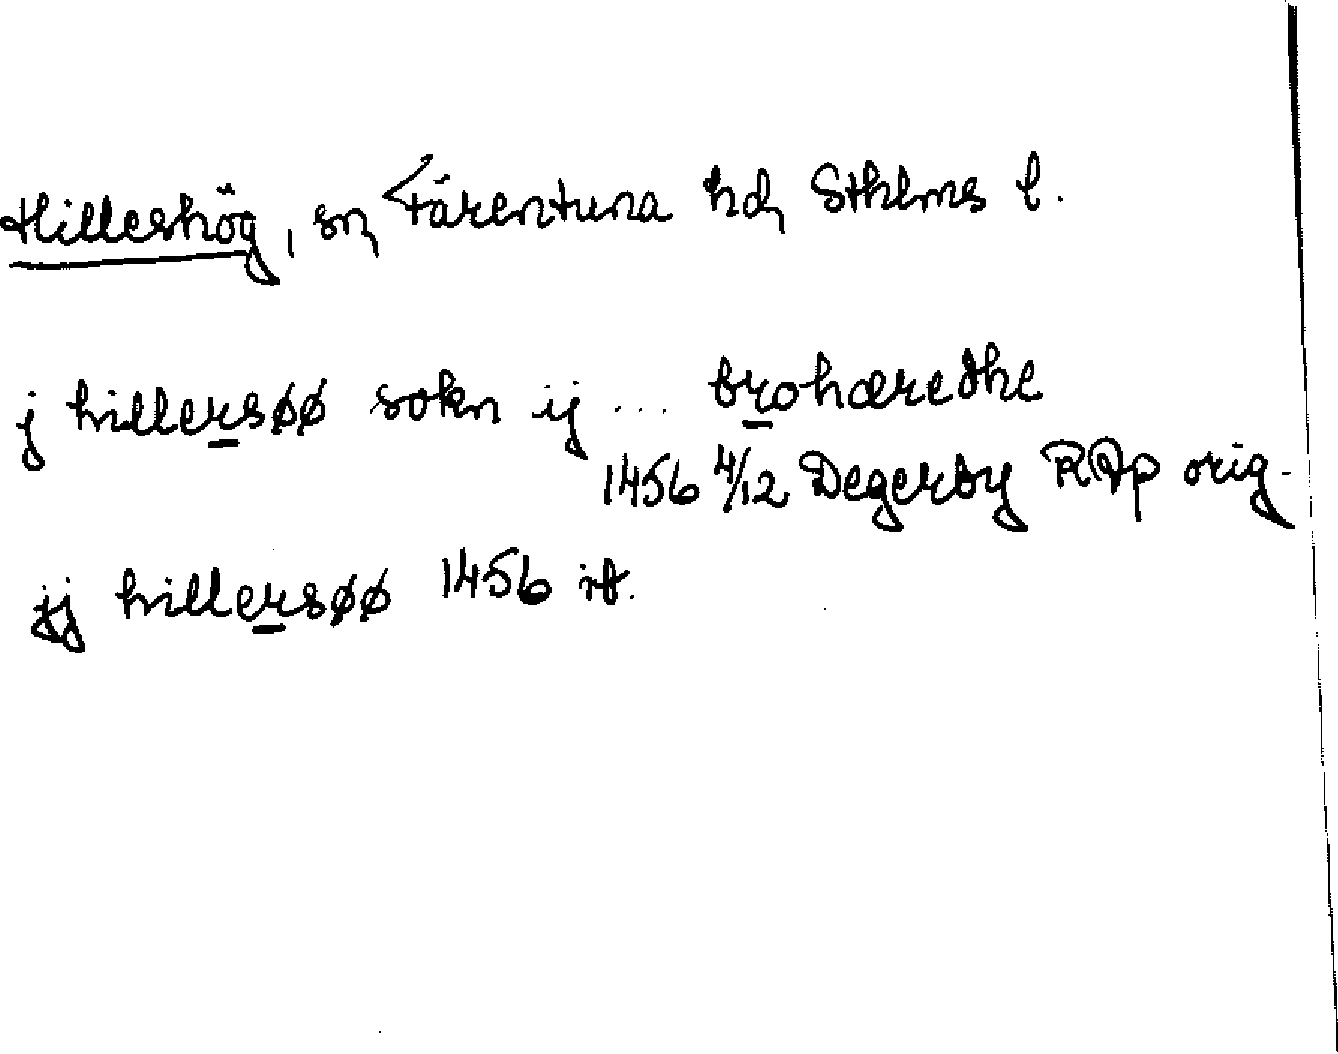 Hilleshög, sn, Färentuna hd, Sthlms l.
j hillersøø sokn ij ... brohæredhe
1456 4/12 Degerby RAp orig.
jj hillersøø 1456 ib.